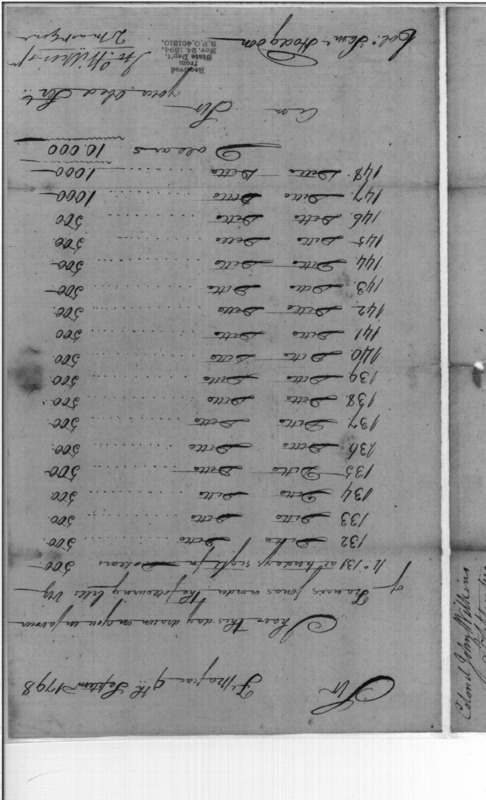 Sir
9th Septem 1798
I have this day drawn on you in favour
of Francis Jonas order the following bills Viz
No 131 at ten days sight for Dolears 500
132 Ditto Ditto 500
133 Ditto Ditto 500
134 Ditto Ditto 500
135 Ditto Ditto 500
136 Ditto Ditto 500
137 Ditto Ditto 500
138 Ditto Ditto 500
139 Ditto Ditto 500
140 Ditto Ditto 500
141 Ditto Ditto 500
142 Ditto Ditto 500
143 Ditto Ditto 500
144 Ditto Ditto 500
145 Ditto Ditto 500
146 Ditto Ditto 500
147 Ditto Ditto 1000
148 Ditto Ditto 1000
Dolears 10.000
I am
Sir
your Obed Servt
Jn Wilkins Jr
2 mas Gen
Col: Saml Hodgdon
Received
from
State Dep't.
Nov. 24 1894.
R.P.O.401810.
Colonel John Wilkins